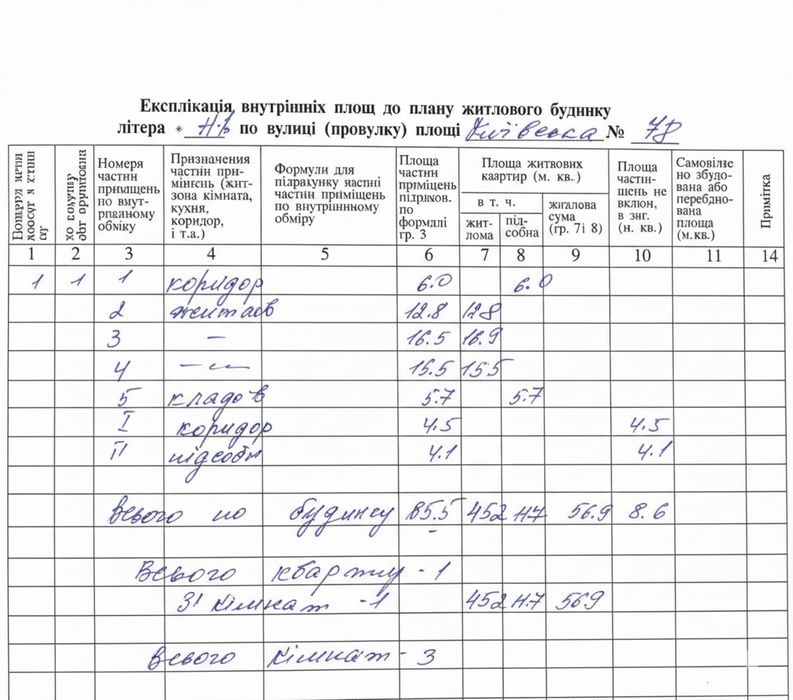 Експлікація внутрішніх площ до плану житлового будинку
літера Н.б по вулиці (провулку) площі Київська № 78
Номеря частин примщень по внут- рпалному обміку
Призначення частин при- мінгень (жит- зона кімната, кухня, коридор, і т.а.)
Формули для підрахунку частин приміщень по внутрішнному обміру
Площа частин приміщень підряхов. по формалі гр. 3
Площа житвових кваартир (м. кв.)
в т. ч.
жит- лома
під- собна
жгалова сума (гр. 7і 8)
Площа частин- шень не вклон, в знг. (н. кв.)
Самовілзє но збудо- вана або перебдно- вана площа (м.кв.)
Примітка
1 2 3 4 5 6 7 8 9 10 11 14
1 1 1 коридор 6.0 6.0
2 12.8 128
3 — 16.5 16.9
4 15.5 15.5
5 кладов 5.7 5.7
I коридор 4.5 4.5
II підсобн 4.1 4.1
Всього по будинсу 85.5 452 Н.7 56.9 8.6
Всього квартту - 1
3і кімнат - 1 452 Н.7 569
всього кімнат - 3